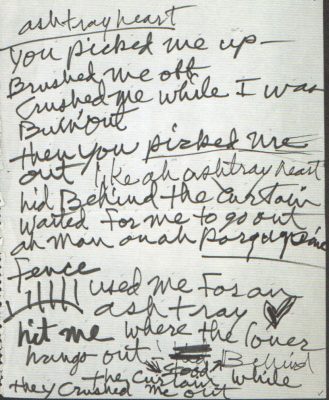 ashtray heart
You picked me up –
Brushed me off
Crushed me while I was
Burn'out
then you picked me
out like ah ashtray heart
hid Behind the curtain
waited for me to go out
ah man onah porqupine
Fence
used me For an
ashtray ♡
hit me where the lover
hangs out Behind
the curtain while
they crushed me out